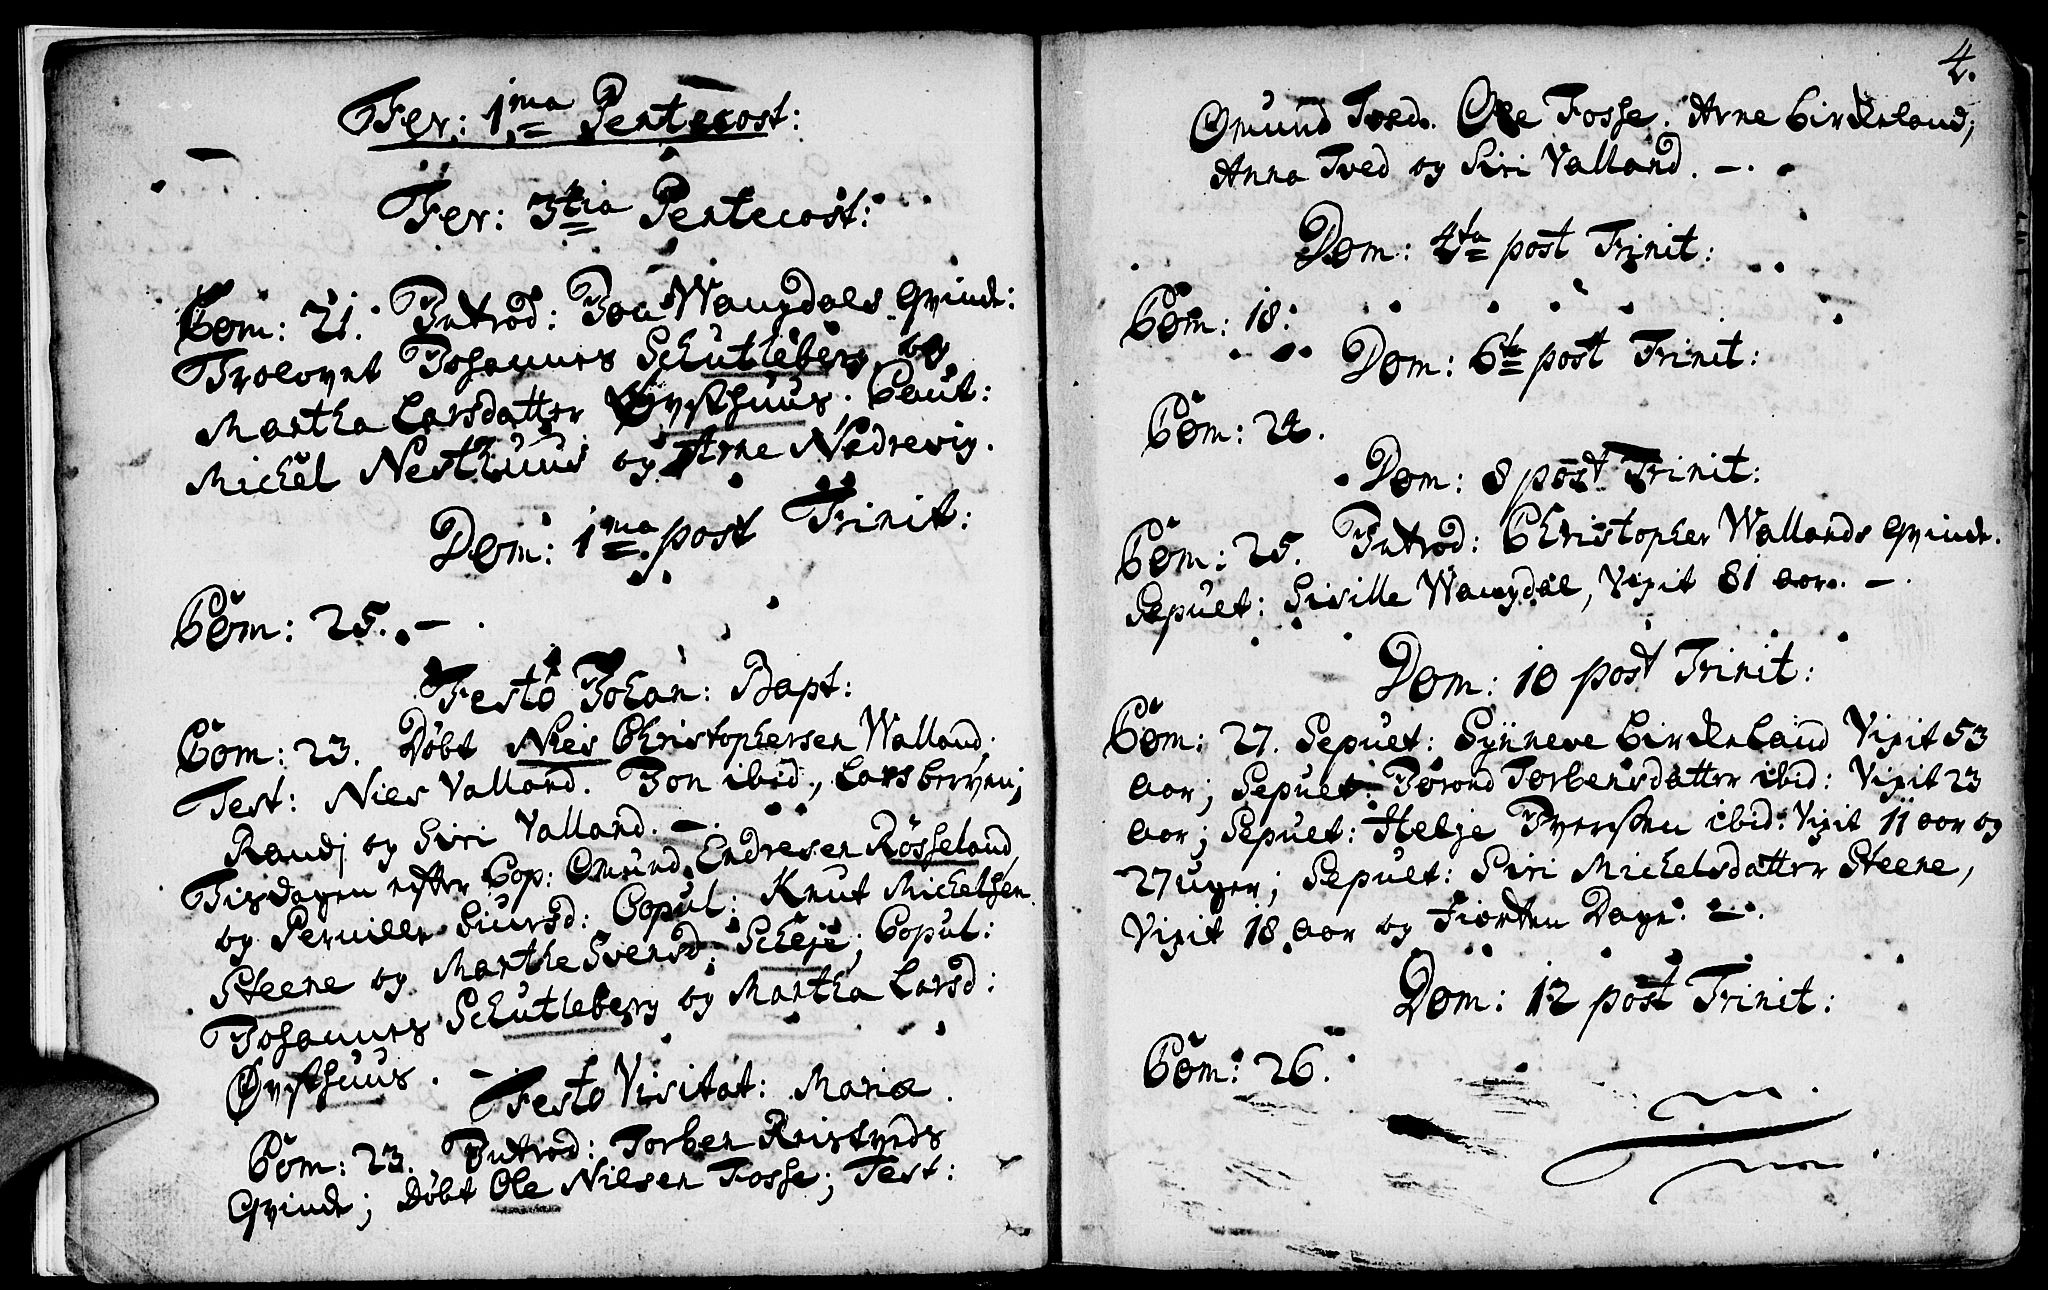 Fer: 1ma Pentecost:
Fer: 3tia Pentecost:
Com: 21. Introd: Joa Waugdals Qvinde:
Trolovet Johannes Schutleberg og
Martha Larsdatter Øysthuus. Caut:
Michel Nesthuus og Arne Nedrevig.
Dom: 1ma post Trinit:
Com: 25. –.
Festo Johan: Bapt:
Com: 23. Døbt Niels Christophersen Walland.
Test: Niels Valland. Jon ibid, Lars
Randj og Siri Valland. –.
Tirsdagen efter Cop: Omund Endresen Rösseland
og Pernille Siursd: Copul: Knut Michelsen
Steene og Marthe Svensd: Scheje; Copul:
Johannes Schutleberg og Martha Larsd:
Øysthuus. –
Festo Visitat: Mariæ.
Com: 23. Introd: Torben
Qvinde; Døbt Ole Nilsen Fosse; Test:
4.
Omund Tved. Ole Fosse. Arne Birckeland;
Anna Tved og Siri Valland. –.
Dom: 4ta post Trinit:
Com: 18:
Dom: 6ta post Trinit:
Com: 24.
Dom: 8 post Trinit:
Com: 25. Introd: Christopher Wallands Qvinde.
Sepult: Siville Waugdal, Vixit 81 aar. –.
Dom: 10 post Trinit:
Com: 27. Sepult: Synneve Birckeland Vixit 53
aar; Sepult: Jorond Torbensdatter ibid: Vixit 23
aar; Sepult: Helje Iversen ibid: Vixit 11 aar og
27 uger; Sepult: Siri Michelsdatter Steene,
Vixit 18 aar og Fiorten Dage. –.
Dom: 12 post Trinit:
Com: 26.